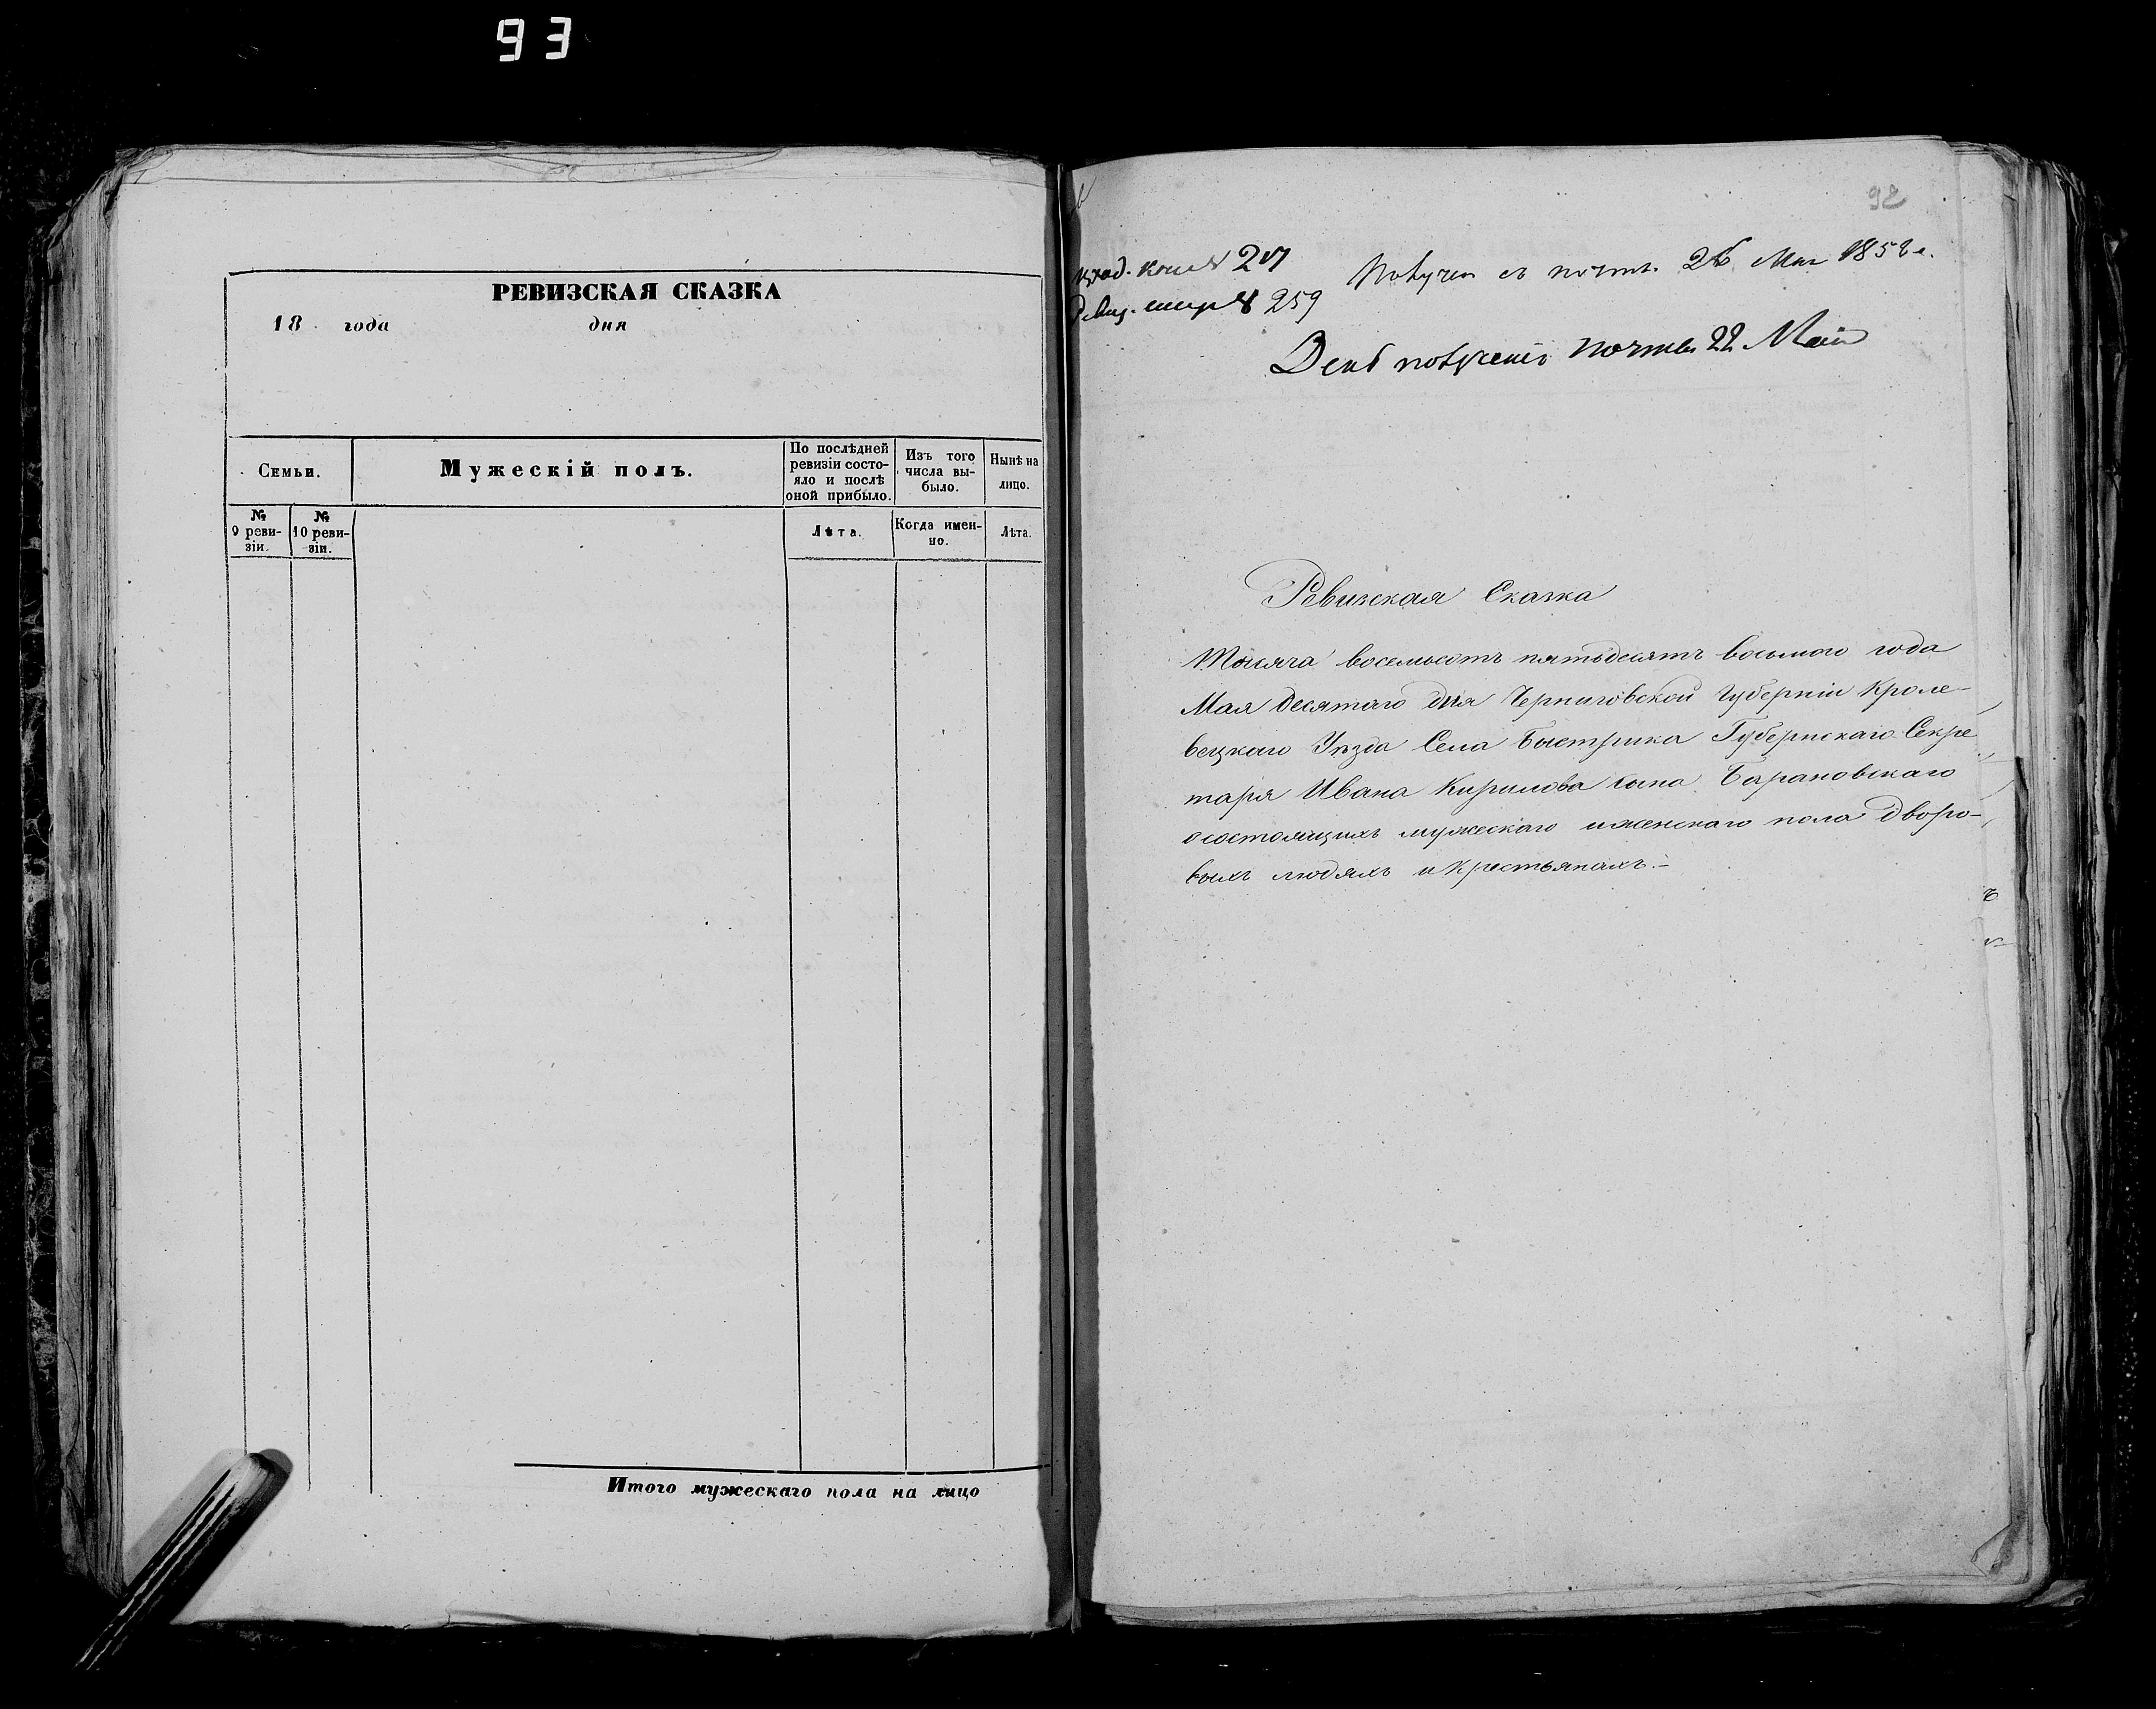 93
РЕВИЗСКАЯ СКАЗКА
18 года дня
Семьи.
Мужескій полъ.
По послѣдней ревизіи состо-
яло и послѣ оной прибыло.
Изъ того числа вы-
было.
Нынѣ на лицо.
№ 9 реви-
зіи.
№ 10 реви-
зіи.
Лѣта.
Когда имен-
но.
Лѣта.
Итого мужескаго пола на лицо
92
259
Получен съ почты 1858 г.
День полученія почты 22 Маія
Ревизская Сказка
Тысяча восемьсотъ пятьдесятъ восьмого года
Мая десятаго дня Черниговской губерніи Кроле-
вецкаго Уѣзда Села Быстрика Губернскаго Секре
таря Ивана Кирилова сына Барановскаго
о состоящихъ мужескаго и женскаго пола дворо-
выхъ людяхъ и крестьянахъ.-